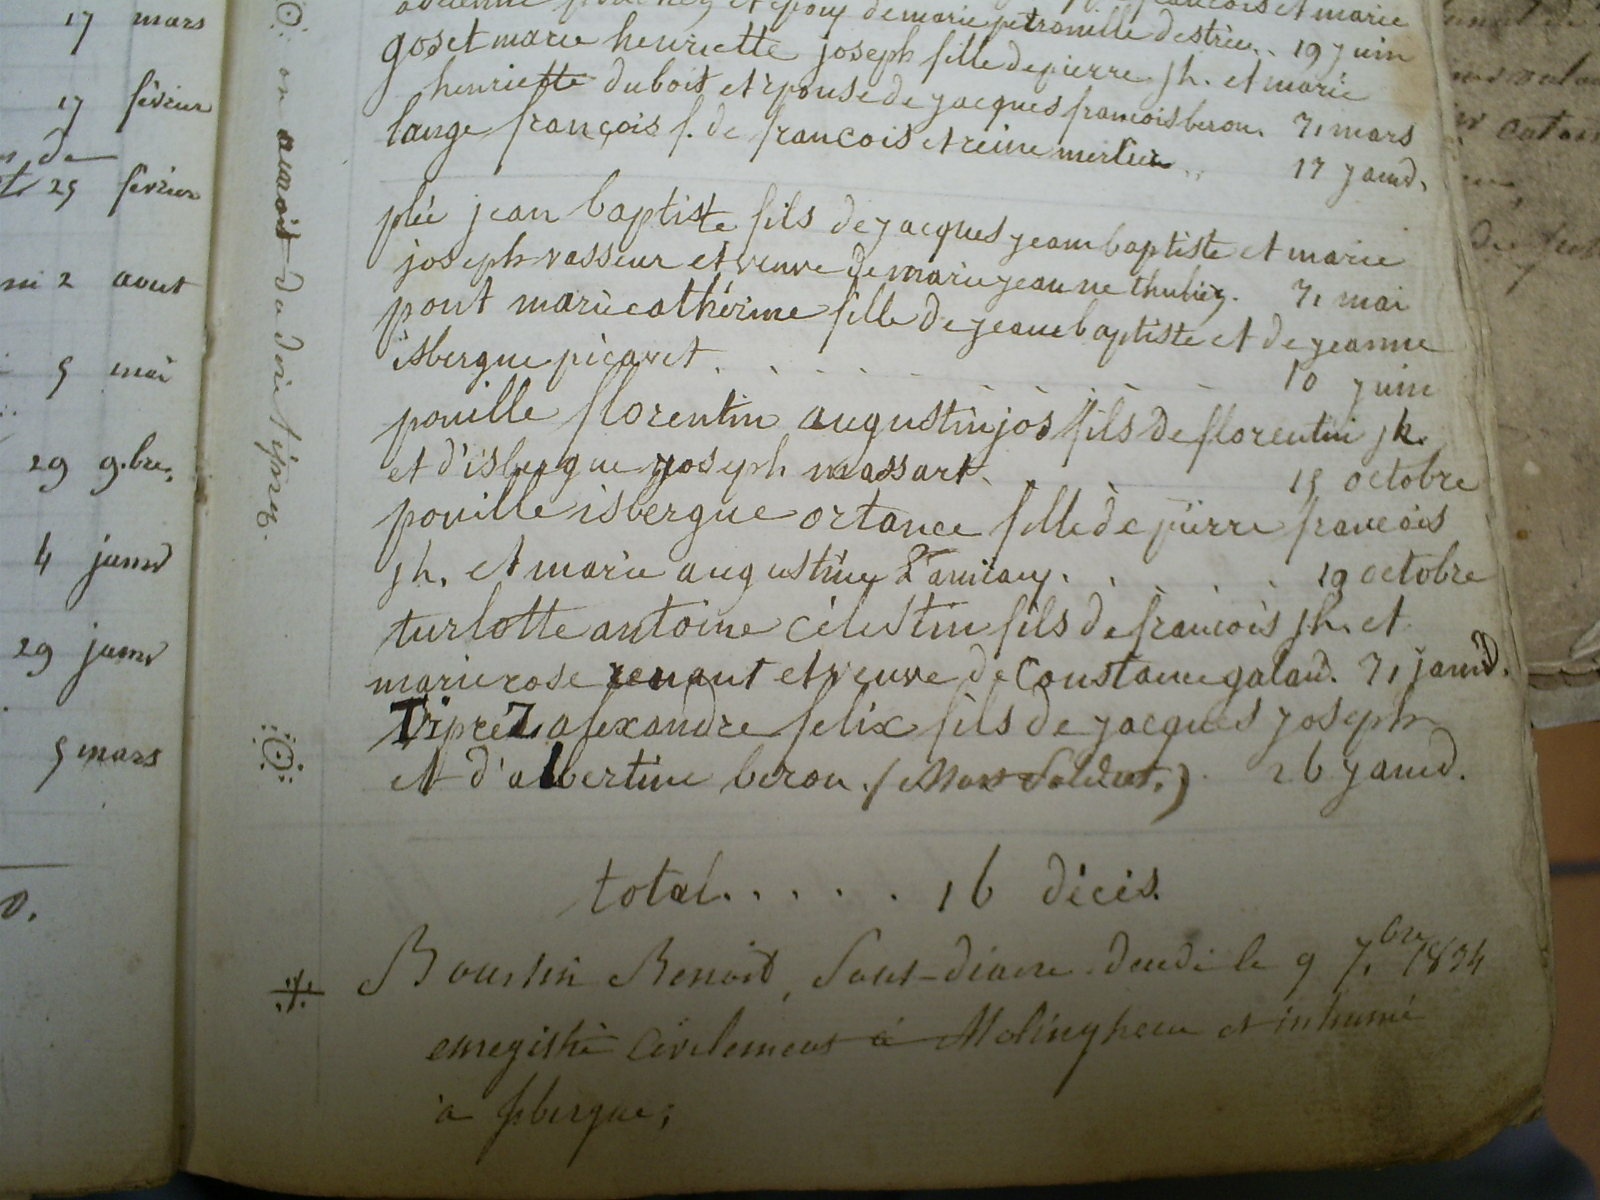 17 mars
17 février
25 février
2 aout
5 mai
29 9.bre.
4 janv
29 janv
5 mars
on auroit du dire tiprez.
et marie
petronille destrée.. 19 juin
goset marie henriette joseph fille de pierre jh. et marie
henriette dubois et épouse de jacques francois beron. 31 mars
lange françois f. de francois et reine merlier .. 17 janvd.
plée jean baptiste fils de jacques jean baptiste et marie
joseph vasseur et veuve de marie jeanne thuliez. 31 mai
pont marie cathérine fille de jean baptiste et de jeanne
isbergue picavet . . . . . . . . 10 juin
pouille florentin augustin jos fils de florentin jh.
et d'isbergue joseph massart. . . . 15 octobre
pouille isbergue ortance fille de pierre francois
jh. et marie augustine . . . . 19 octobre
turlotte antoine célestin fils de francois jh. et
marie rose renaut et veuve de Constance galand. 31 janvd.
Tiprez alexandre felix fils de jacques joseph
et d'albertine beron. (Mort Soldat.) 26 janvd.
total. . . . . 16 décès.
Benoit, Sous-diacre decedé le 9 7.bre 1834
enregistré civilement à Molinghem et inhumé
à isbergue;